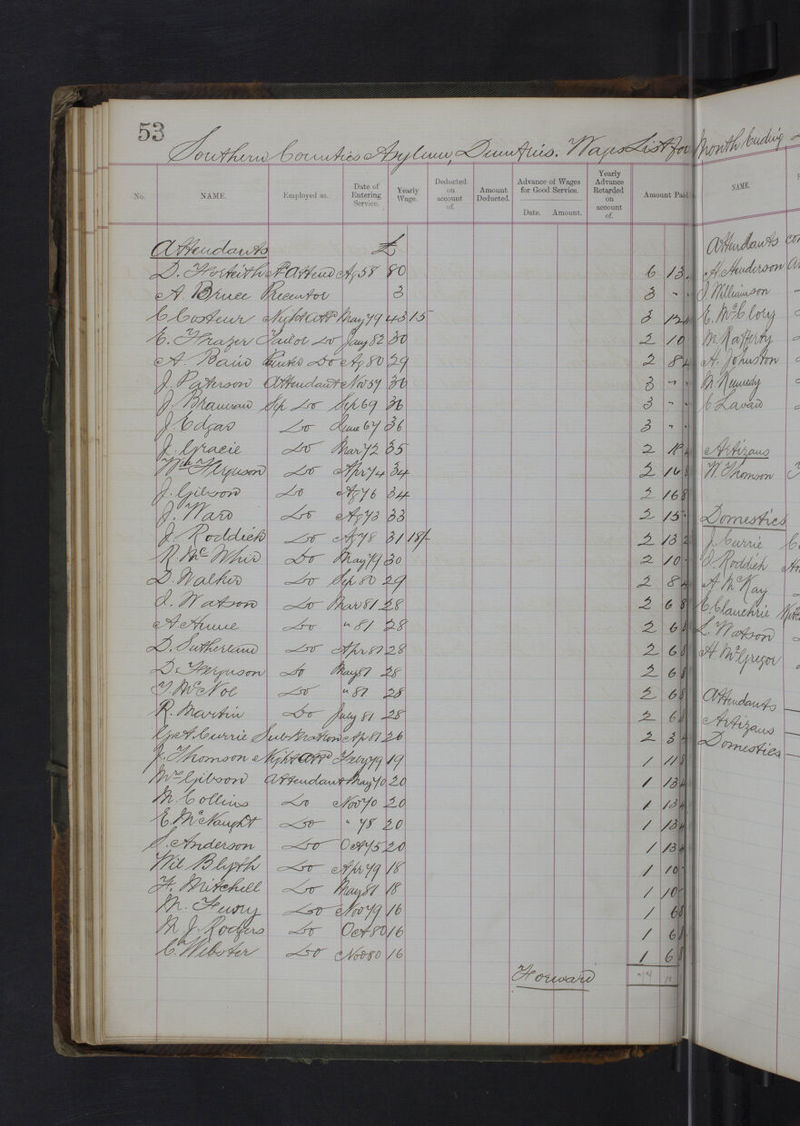 53
Southern Counties Asylum, Dumfries. Wages List for Month Ending
No. NAME. Employed as. Date of Entering Service. Yearly Wage. Deducted on account of. Amount Deducted. Advance of Wages for Good Service. Date. Amount. Yearly Advance Retarded on account of. Amount Paid NAME.
Attendants £
D. Attend Ag 58 80 6 13
A. Bruce Precentor 3 3 - -
C Costeur Night Att May 79 43 15 3 12
E. Frazer Tailor Do Jany 82 30 2 10
A Bain Do Ag 80 29 2 8 4
J. Paterson Attendant Nov 59 36 3 - -
J. Brannan Do Sep 69 36 3 - -
J Edgar Do June 67 36 3 - -
J. Gracie Do Mar 72 35 2 18 4
Wm Ferguson Do Apr 74 34 2 16 8
J. Gibson Do Ag 76 34 2 16 8
J. Ward Do Ag 73 33 2 15 -
J. Roddick Do Ag 78 31 18/- 2 13 2
R. McWhir Do May 79 30 2 10 -
D. Walker Do Sep 80 29 2 8 4
J. Watson Do Mar 81 28 2 6 8
A Annie Do " 81 28 2 6 8
D. Sutherland Do Apr 81 28 2 6 8
D. Ferguson Do May 81 28 2 6 8
T McNoe Do " 81 28 2 6 8
R. Martin Do July 81 28 2 6 8
Geo A. Currie Sub Matron Ap 81 26 2 3 4
J. Thomson Night Att Feby 79 19 1 11 8
M Gibson Attendant May 70 20 1 13 4
M Collins Do Nov 70 20 1 13 4
E. McNaught Do " 78 20 1 13 4
S. Anderson Do Oct 75 20 1 13 4
Wil Blyth Do Apr 79 18 1 10 -
F. Mitchell Do May 81 18 1 10 -
M. Furry Do Nov 79 16 1 6 8
M J. Rodgers Do Oct 80 16 1 6 8
C Webster Do Nov 80 16 1 6 8
Forward
Attendants con
A Henderson
J Williamson
E. McClory
M Rafferty
A. Johnston
M Kennedy
C Lavard
Artizans
W. Thomson
Domestics
J. Currie
J Roddick
A McKay
C Clanchrie
L. Watson
A McGregor
Attendants
Artizans
Domestics